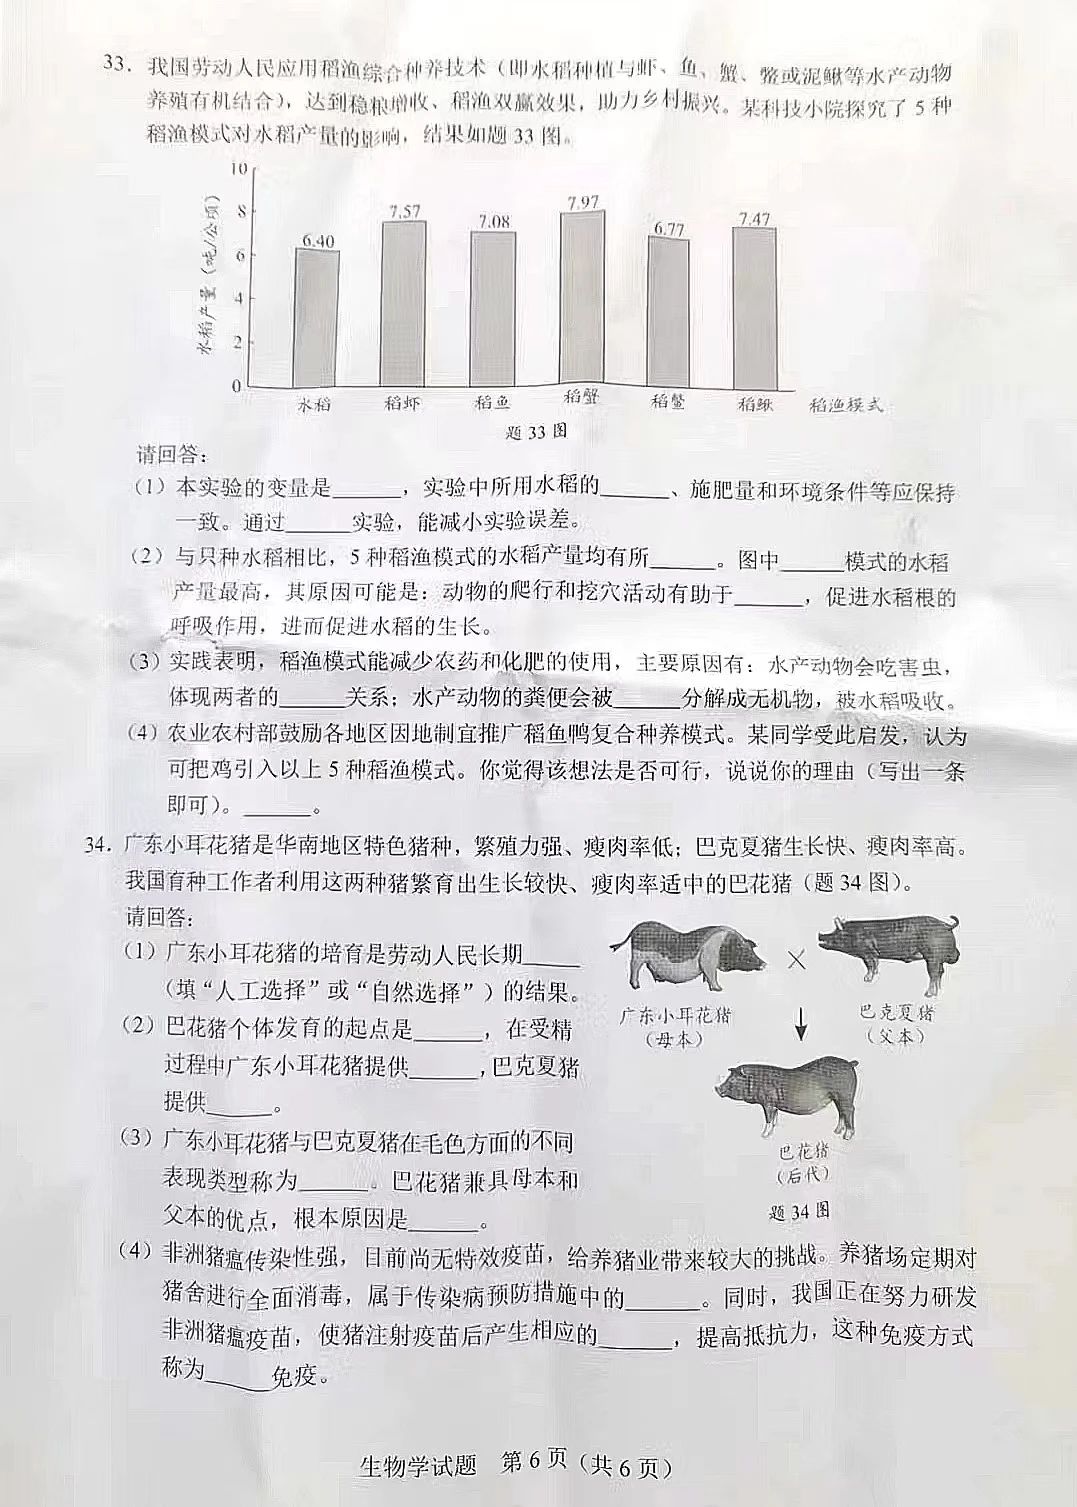 33．我国劳动人民应用稻渔综合种养技术（即水稻种植与虾、鱼、蟹、鳖或泥鳅等水产动物
养殖有机结合），达到稳粮增收、稻渔双赢效果，助力乡村振兴。某科技小院探究了 5 种
稻渔模式对水稻产量的影响，结果如题 33 图。
水稻产量（吨/公顷）
10
8
6
4
2
0
6.40
7.57
7.08
7.97
6.77
7.47
水稻 稻虾 稻鱼 稻蟹 稻鳖 稻鳅 稻渔模式
题 33 图
请回答：
（1）本实验的变量是______，实验中所用水稻的______、施肥量和环境条件等应保持
一致。通过______实验，能减小实验误差。
（2）与只种水稻相比，5 种稻渔模式的水稻产量均有所______。图中______模式的水稻
产量最高，其原因可能是：动物的爬行和挖穴活动有助于______，促进水稻根的
呼吸作用，进而促进水稻的生长。
（3）实践表明，稻渔模式能减少农药和化肥的使用，主要原因有：水产动物会吃害虫，
体现两者的______关系；水产动物的粪便会被______分解成无机物，被水稻吸收。
（4）农业农村部鼓励各地区因地制宜推广稻鱼鸭复合种养模式。某同学受此启发，认为
可把鸡引入以上 5 种稻渔模式。你觉得该想法是否可行，说说你的理由（写出一条
即可）。______。
34．广东小耳花猪是华南地区特色猪种，繁殖力强、瘦肉率低；巴克夏猪生长快、瘦肉率高。
我国育种工作者利用这两种猪繁育出生长较快、瘦肉率适中的巴花猪（题 34 图）。
请回答：
（1）广东小耳花猪的培育是劳动人民长期______
（填“人工选择”或“自然选择”）的结果。
（2）巴花猪个体发育的起点是______，在受精
过程中广东小耳花猪提供______，巴克夏猪
提供______。
（3）广东小耳花猪与巴克夏猪在毛色方面的不同
表现类型称为______。巴花猪兼具母本和
父本的优点，根本原因是______。
×
广东小耳花猪
（母本）
巴克夏猪
（父本）
巴花猪
（后代）
题 34 图
（4）非洲猪瘟传染性强，目前尚无特效疫苗，给养猪业带来较大的挑战。养猪场定期对
猪舍进行全面消毒，属于传染病预防措施中的______。同时，我国正在努力研发
非洲猪瘟疫苗，使猪注射疫苗后产生相应的______，提高抵抗力，这种免疫方式
称为______免疫。
生物学试题 第 6 页（共 6 页）